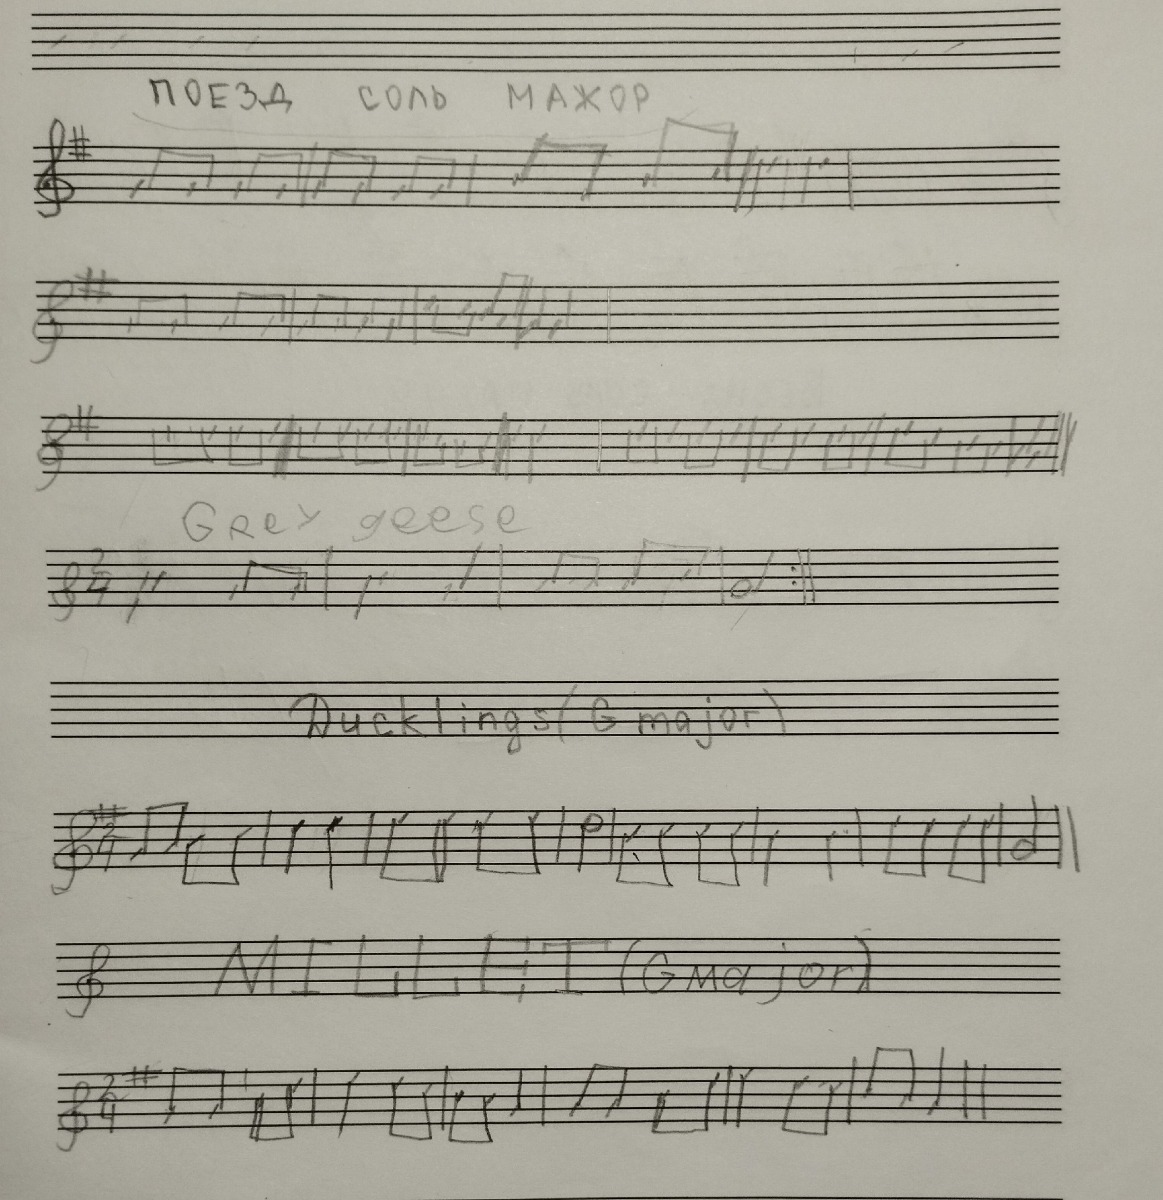 ПОЕЗД СОЛЬ МАЖОР
Grey geese
2
4
Ducklings (G major)
2
4
MILLET (G major)
2
4